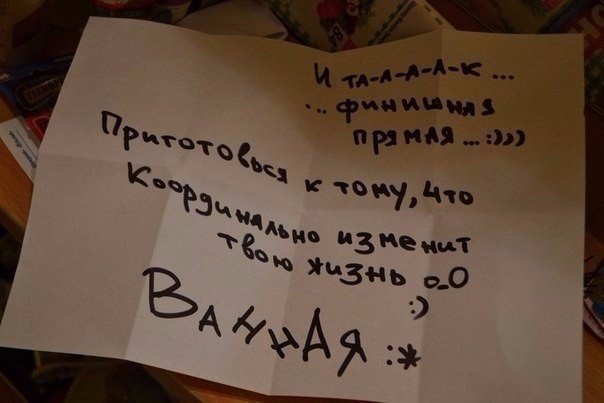 И та-а-а-а-к...
... финишная
прямая...:)))
Приготовься к тому, что
Координально изменит
твою жизнь о_О
:)
Ванная :*